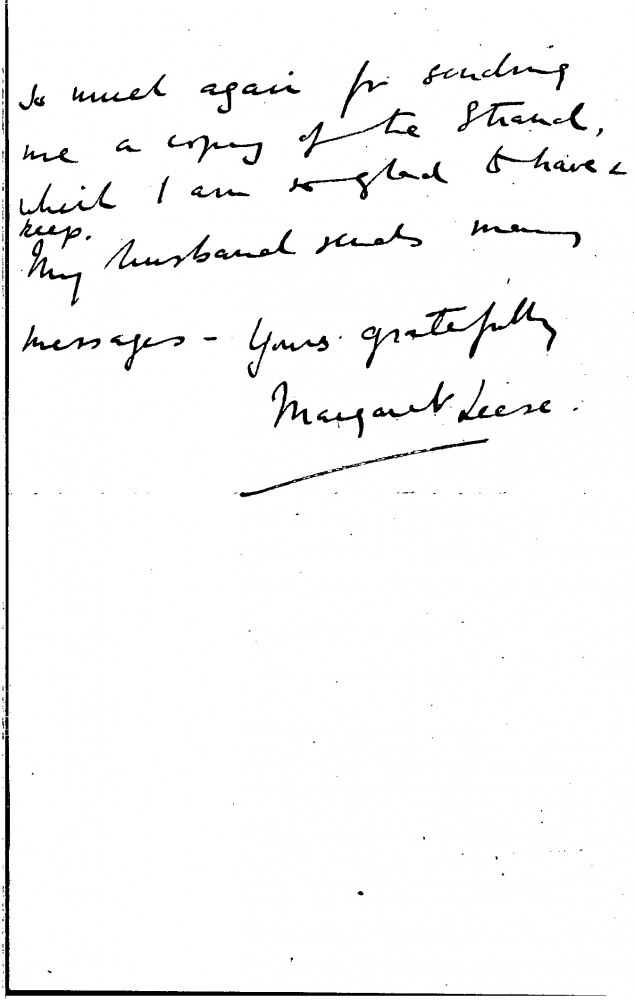 so much again for sending
me a copy of the Strand,
which I am so glad to have &
keep.
My husband sends many
messages - Yours gratefully
Margaret Leese.